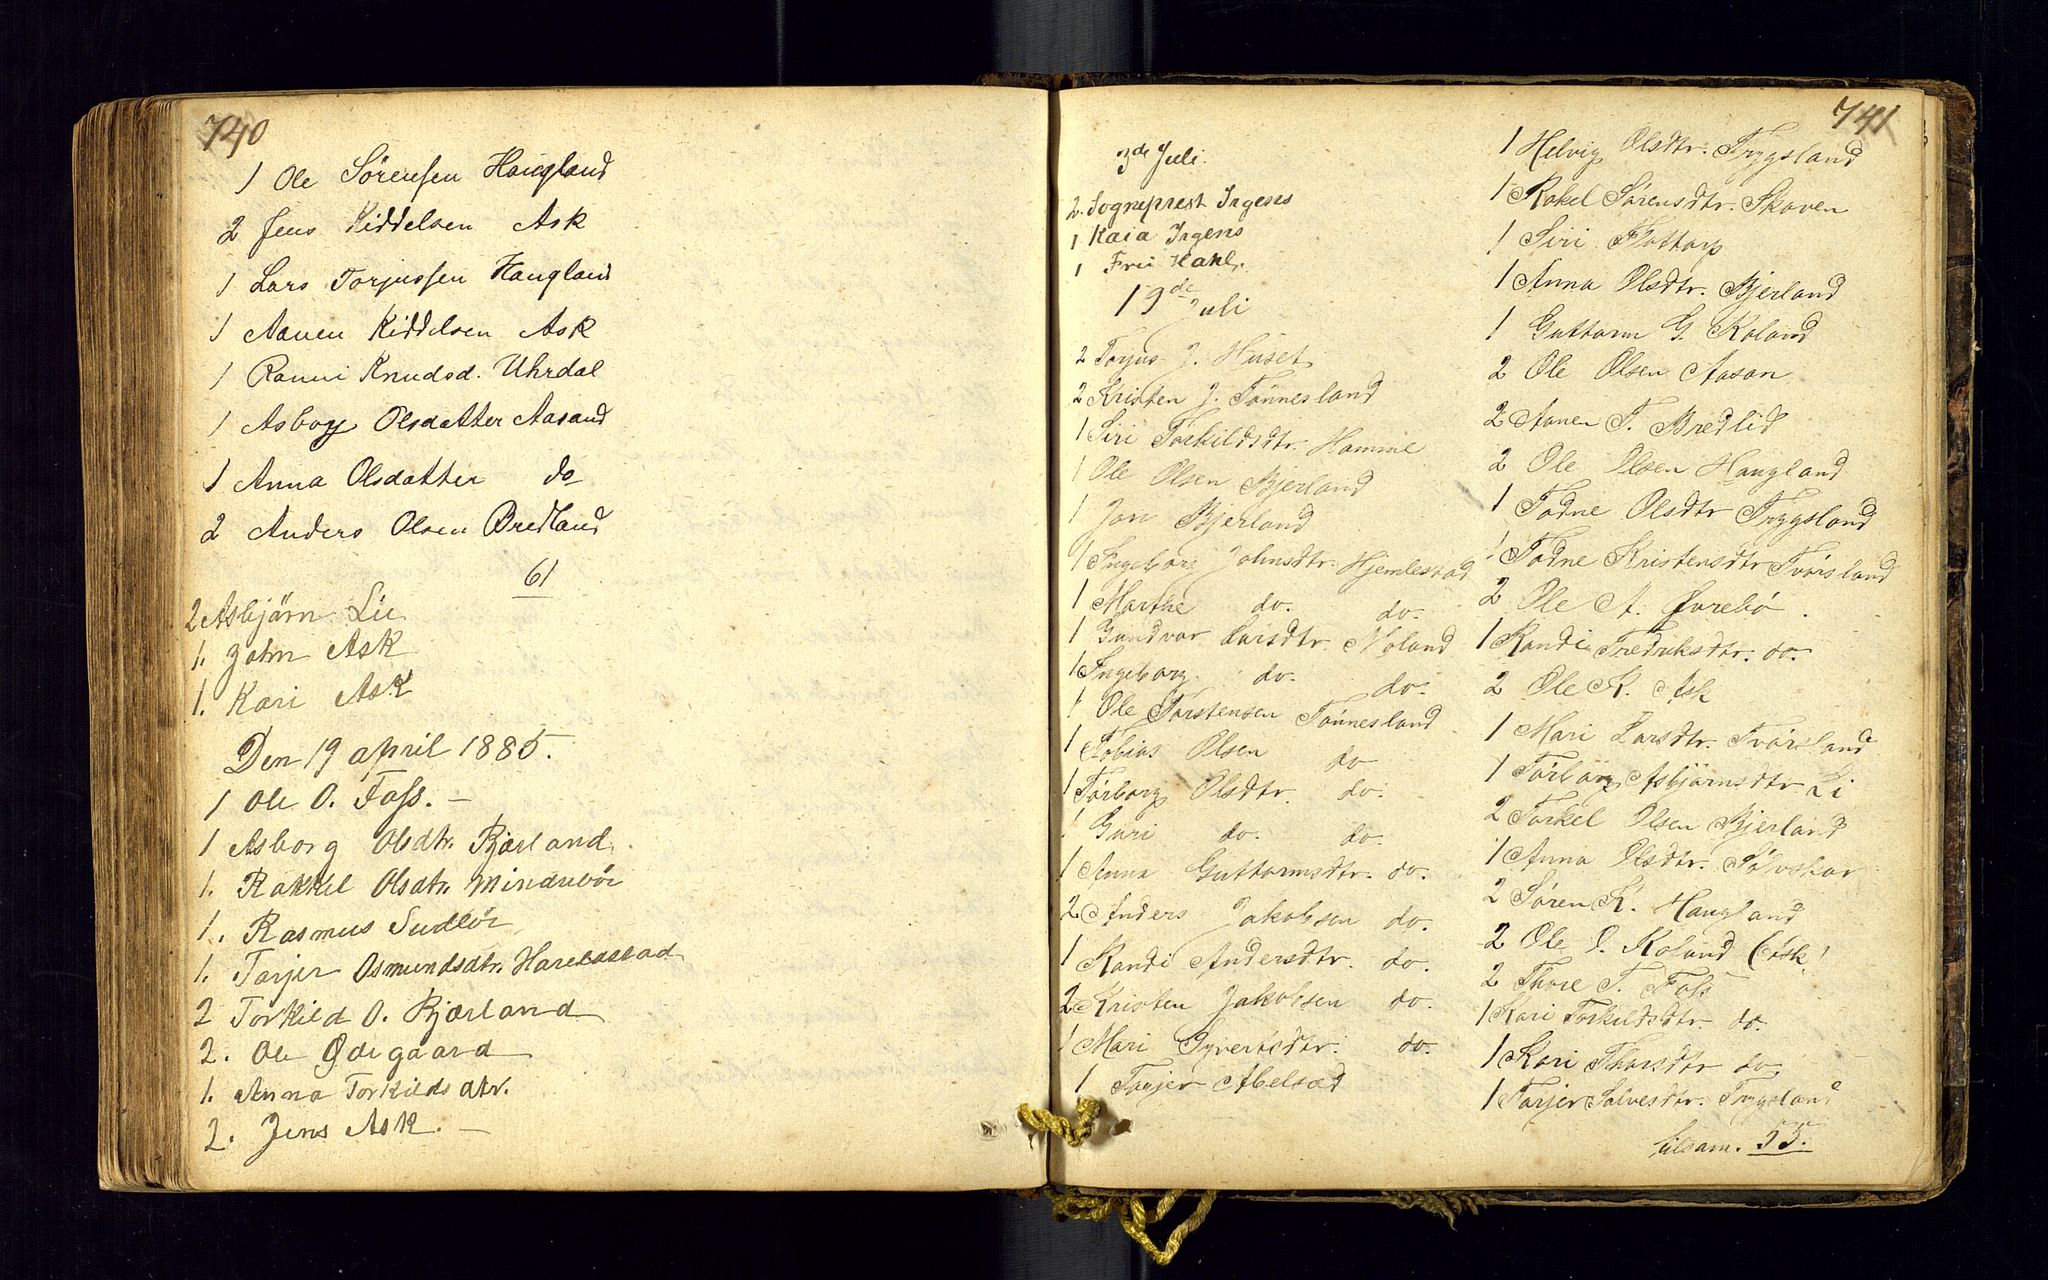 740
1 Ole Sørensen Haugland
2 Jens Kiddelsen Ask
1 Lars Torjussen Haugland
1 Aanen Kiddelsen Ask
1 Ranni Knudsd. Uhrdal
1 Asborg Olsdatter Aasand
1 Anna Olsdatter do
2 Anders Olsen Bredland
61
2 Asbjörn Lie
1. John Ask
1. Kari Ask
Den 19 april 1885.
1 Ole O. Foss. –
1 Asborg Olsdtr. Bjærland.
1. Rakkel Olsdtr. Mindrebör
1. Rasmus Sudbör
1. Tarjer Osmundsdtr. Harelastad
2 Torkild O. Bjærland
2. Ole Ødegaard
1. Anna Torkildsdtr.
2. Jens Ask. –
741
3de Juli.
2. Sogneprest Irgens
1 Kaia Irgens
1 Frü Hahl.
19de Juli
2 Torjus J. Huset
2 Kristen J. Tönnesland
1 Siri Torkildsdtr. Homme
1 Ole Olsen Bjerland
1 Jon Bjerland
1 Ingeborg Johnsdtr. Hjemlestad
1 Marthe do. do.
1 Gundvor Larsdtr. Noland
1 Ingeborg do. do.
1 Ole Torstensen Tönnesland
1 Tobias Olsen do
1 Torborg Olsdtr. do.
1 Guri do. do.
1 Anna Guttormsdtr. do.
2 Anders Jakobsen do.
1 Randi Andersdtr. do.
2 Kristen Jakobsen do.
1 Mari Syvertsdtr. do.
1 Tarjer Abelsæd
1 Helvig Olsdtr. Trygsland
1 Rakel Sörensdtr. Skoven
1 Siri Flottorp
1 Anna Olsdtr. Bjerland
1 Guttorm G. Roland
2 Ole Olsen Aasan
2 Aanen T. Bredlid
2 Ole Olsen Haugland
1 Todne Olsdtr Trygsland
1 Todne Kristensdtr Tvörsland
2 Ole A. Øvrebö.
1 Randi Fredriksdtr. do.
2 Ole K. Ask
1 Mari Larsdtr. Tvörsland
1 Torborg Asbjörnsdtr. Li
2 Torkel Olsen Bjerland
1 Anna Olsdtr. Sölvskar
2 Sören K. Haugland
2 Ole O. Roland (Ask)
2 Thore T. Foss
1 Kari Torkildsdtr. do.
1 Kari Thorsdtr do.
1 Tarjer Salvesdtr. Trygsland
tilsam. 53.